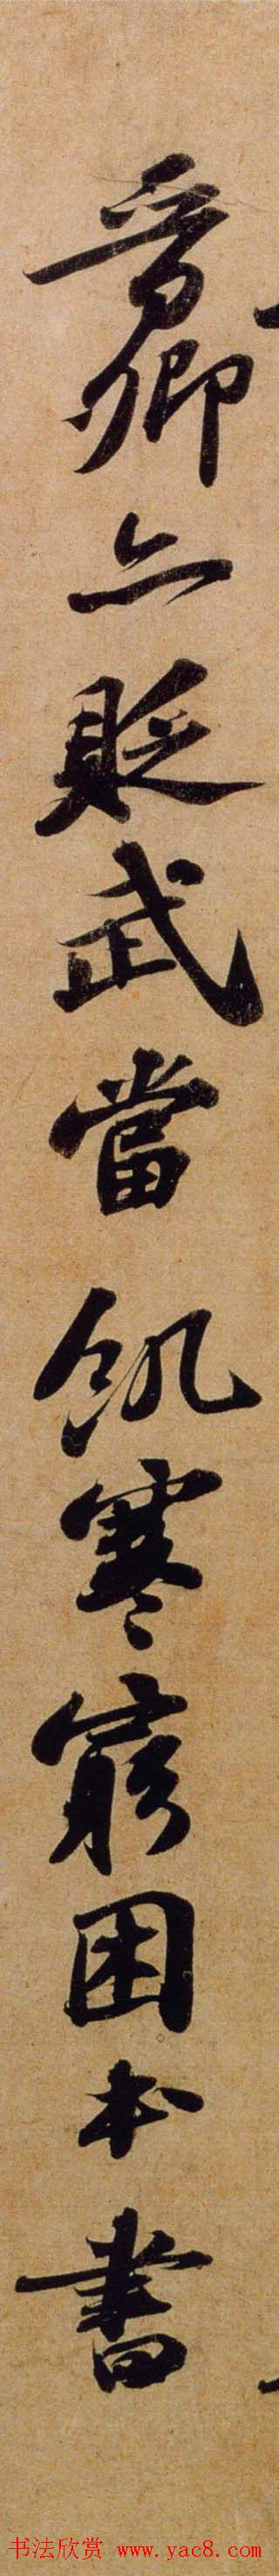 晋卿亦貶武當飢寒窮困本書
书法欣赏 www.yac8.com